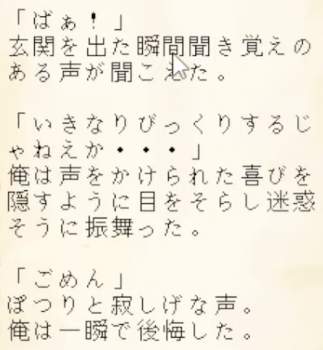 「ばぁ！」
玄関を出た瞬間聞き覚えの
ある声が聞こえた。
「いきなりびっくりするじ
ゃねえか・・・」
俺は声をかけられた喜びを
隠すように目をそらし迷惑
そうに振舞った。
「ごめん」
ぽつりと寂しげな声。
俺は一瞬で後悔した。